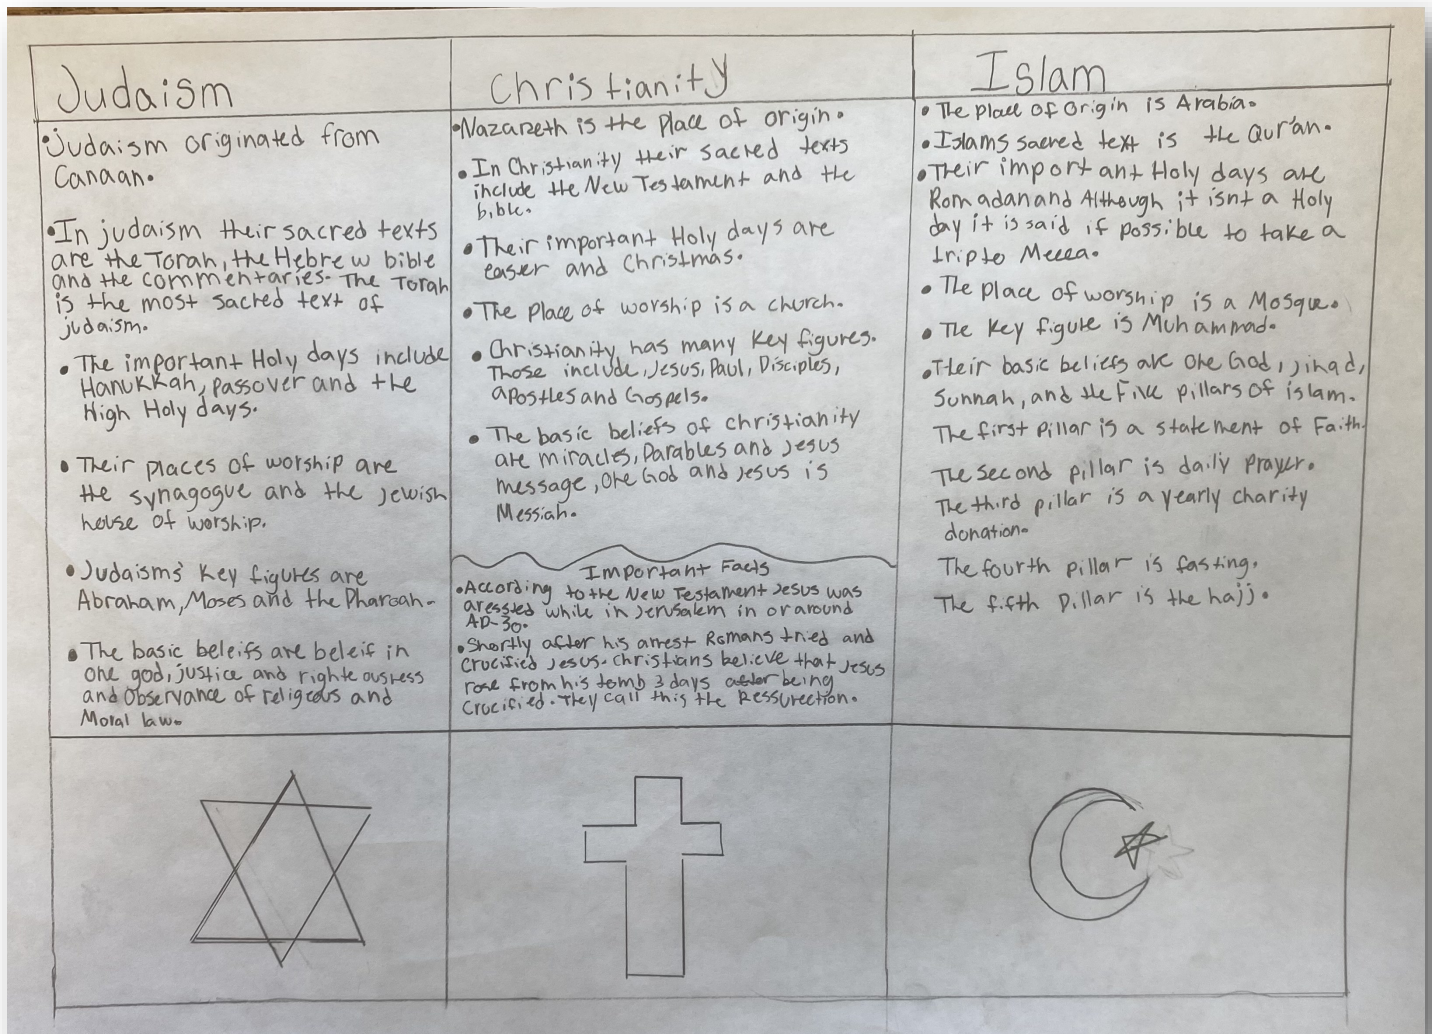 Judaism
•Judaism originated from
Canaan.
•In judaism their sacred texts
are the Torah, the Hebrew bible
and the commentaries. The Torah
is the most sacred text of
judaism.
• The important Holy days include
Hanukkah, Passover and the
High Holy days.
• Their places of worship are
the synagogue and the jewish
house of worship.
• Judaisms' key figures are
Abraham, Moses and the Pharoah.
• The basic beleifs are beleif in
one god, justice and righteousness
and observance of religeous and
Moral law.
Christianity
•Nazareth is the place of origin.
• In Christianity their sacred texts
include the New Testament and the
bible.
• Their important Holy days are
easter and Christmas.
• The place of worship is a church.
• Christianity has many key figures.
Those include, Jesus, Paul, Disciples,
apostles and Gospels.
• The basic beliefs of christianity
are miracles, Parables and Jesus
message, one God and Jesus is
Messiah.
Important Facts
•According to the New Testament Jesus was
aressted while in Jerusalem in or around
AD-30.
•Shortly after his arrest Romans tried and
crucified Jesus. Christians believe that Jesus
rose from his tomb 3 days after being
crucified. They call this the Ressurection.
Islam
• The place of origin is Arabia.
• Islams sacred text is the Qur'an.
• Their important Holy days are
Romadan and Although it isnt a Holy
day it is said if possible to take a
trip to Mecca.
• The place of worship is a Mosque.
• The key figure is Muhammad.
•Their basic beliefs are one God, jihad,
Sunnah, and the Five pillars of islam.
The first pillar is a statement of Faith.
The second pillar is daily prayer.
The third pillar is a yearly charity
donation.
The fourth pillar is fasting.
The fifth pillar is the hajj.